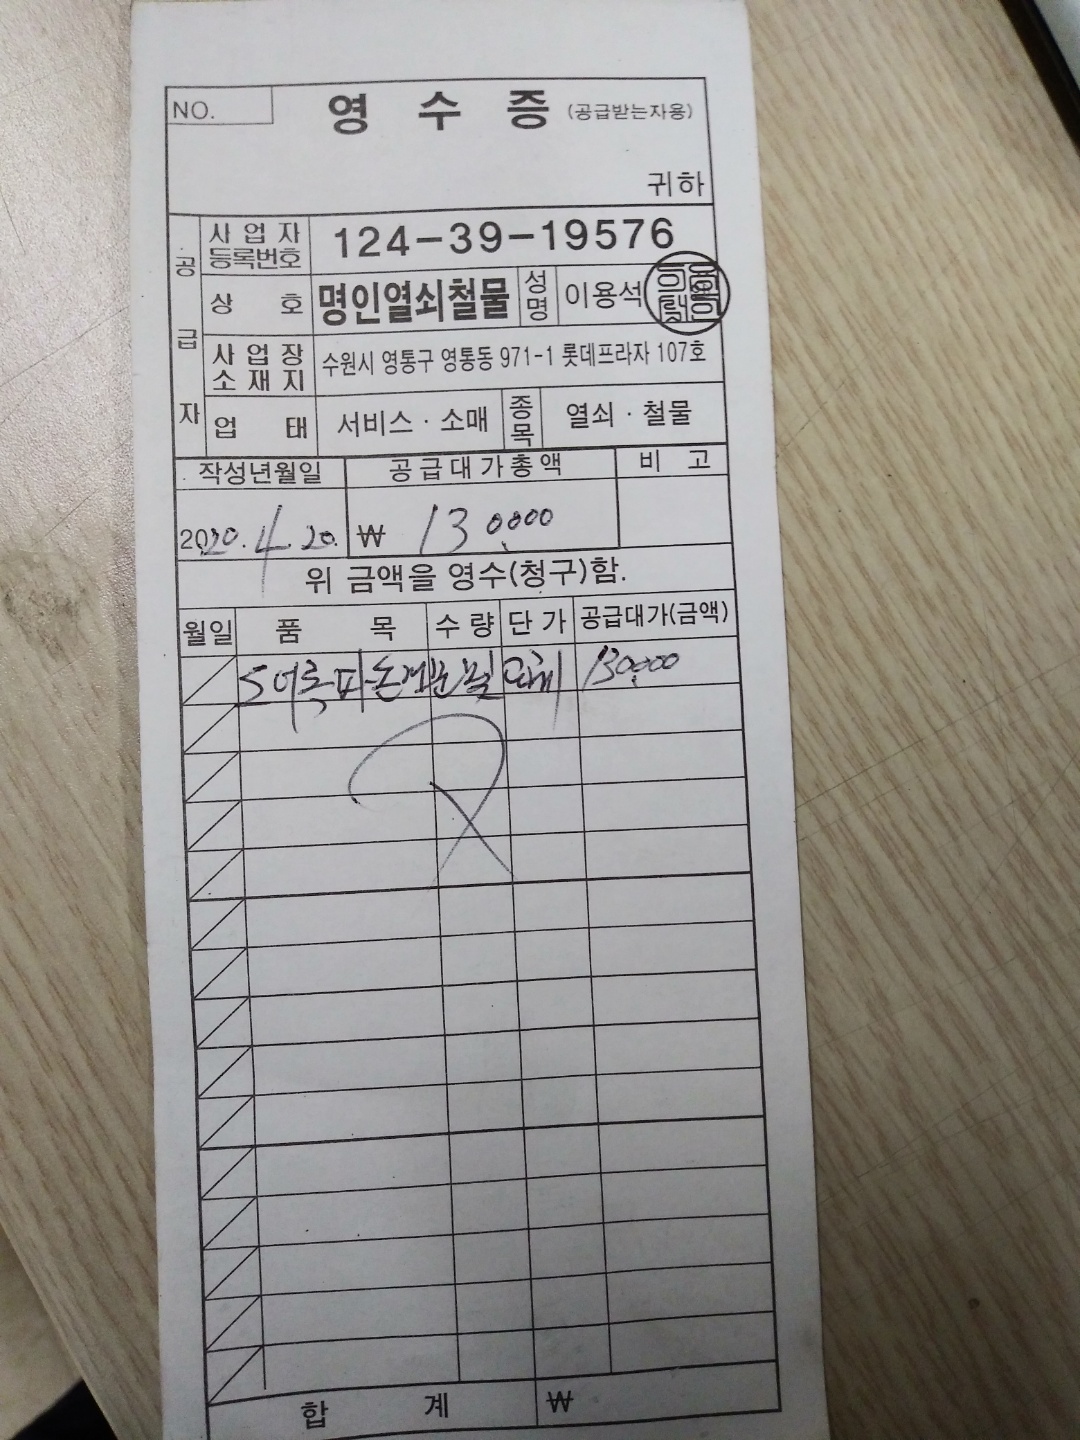 NO.
영 수 증 (공급받는자용)
귀하
공급자
사업자등록번호 124-39-19576
상 호 명인열쇠철물 성명 이용석
사업장소재지 수원시 영통구 영통동 971-1 롯데프라자 107호
업 태 서비스·소매 종목 열쇠·철물
작성년월일 공급대가총액 비 고
2020. 4. 20. ₩ 130,000
위 금액을 영수(청구)함.
월일 품 목 수량 단가 공급대가(금액)
교체 130,000
합 계 ₩